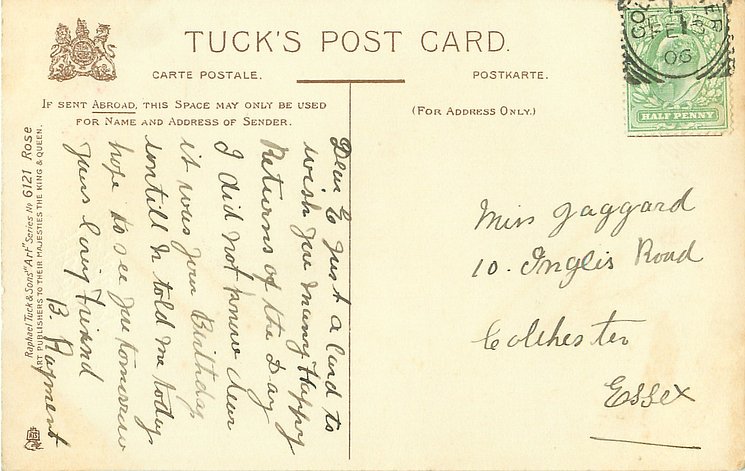 TUCK'S POST CARD.
CARTE POSTALE.
POSTKARTE.
IF SENT ABROAD, THIS SPACE MAY ONLY BE USED
FOR NAME AND ADDRESS OF SENDER.
(FOR ADDRESS ONLY.)
HALF PENNY
06
Raphael Tuck & Sons' "Art" Series No 6121 Rose
ART PUBLISHERS TO THEIR MAJESTIES THE KING & QUEEN.
Dear Just a Card to
wish you many Happy
Returns of the Day
I did not know dear
it was your Birthday
untill told me today
hope to see you tomorrow
yours loving Friend
B. Rayment
Miss Jaggard
10. Inglis Road
Colchester
Essex